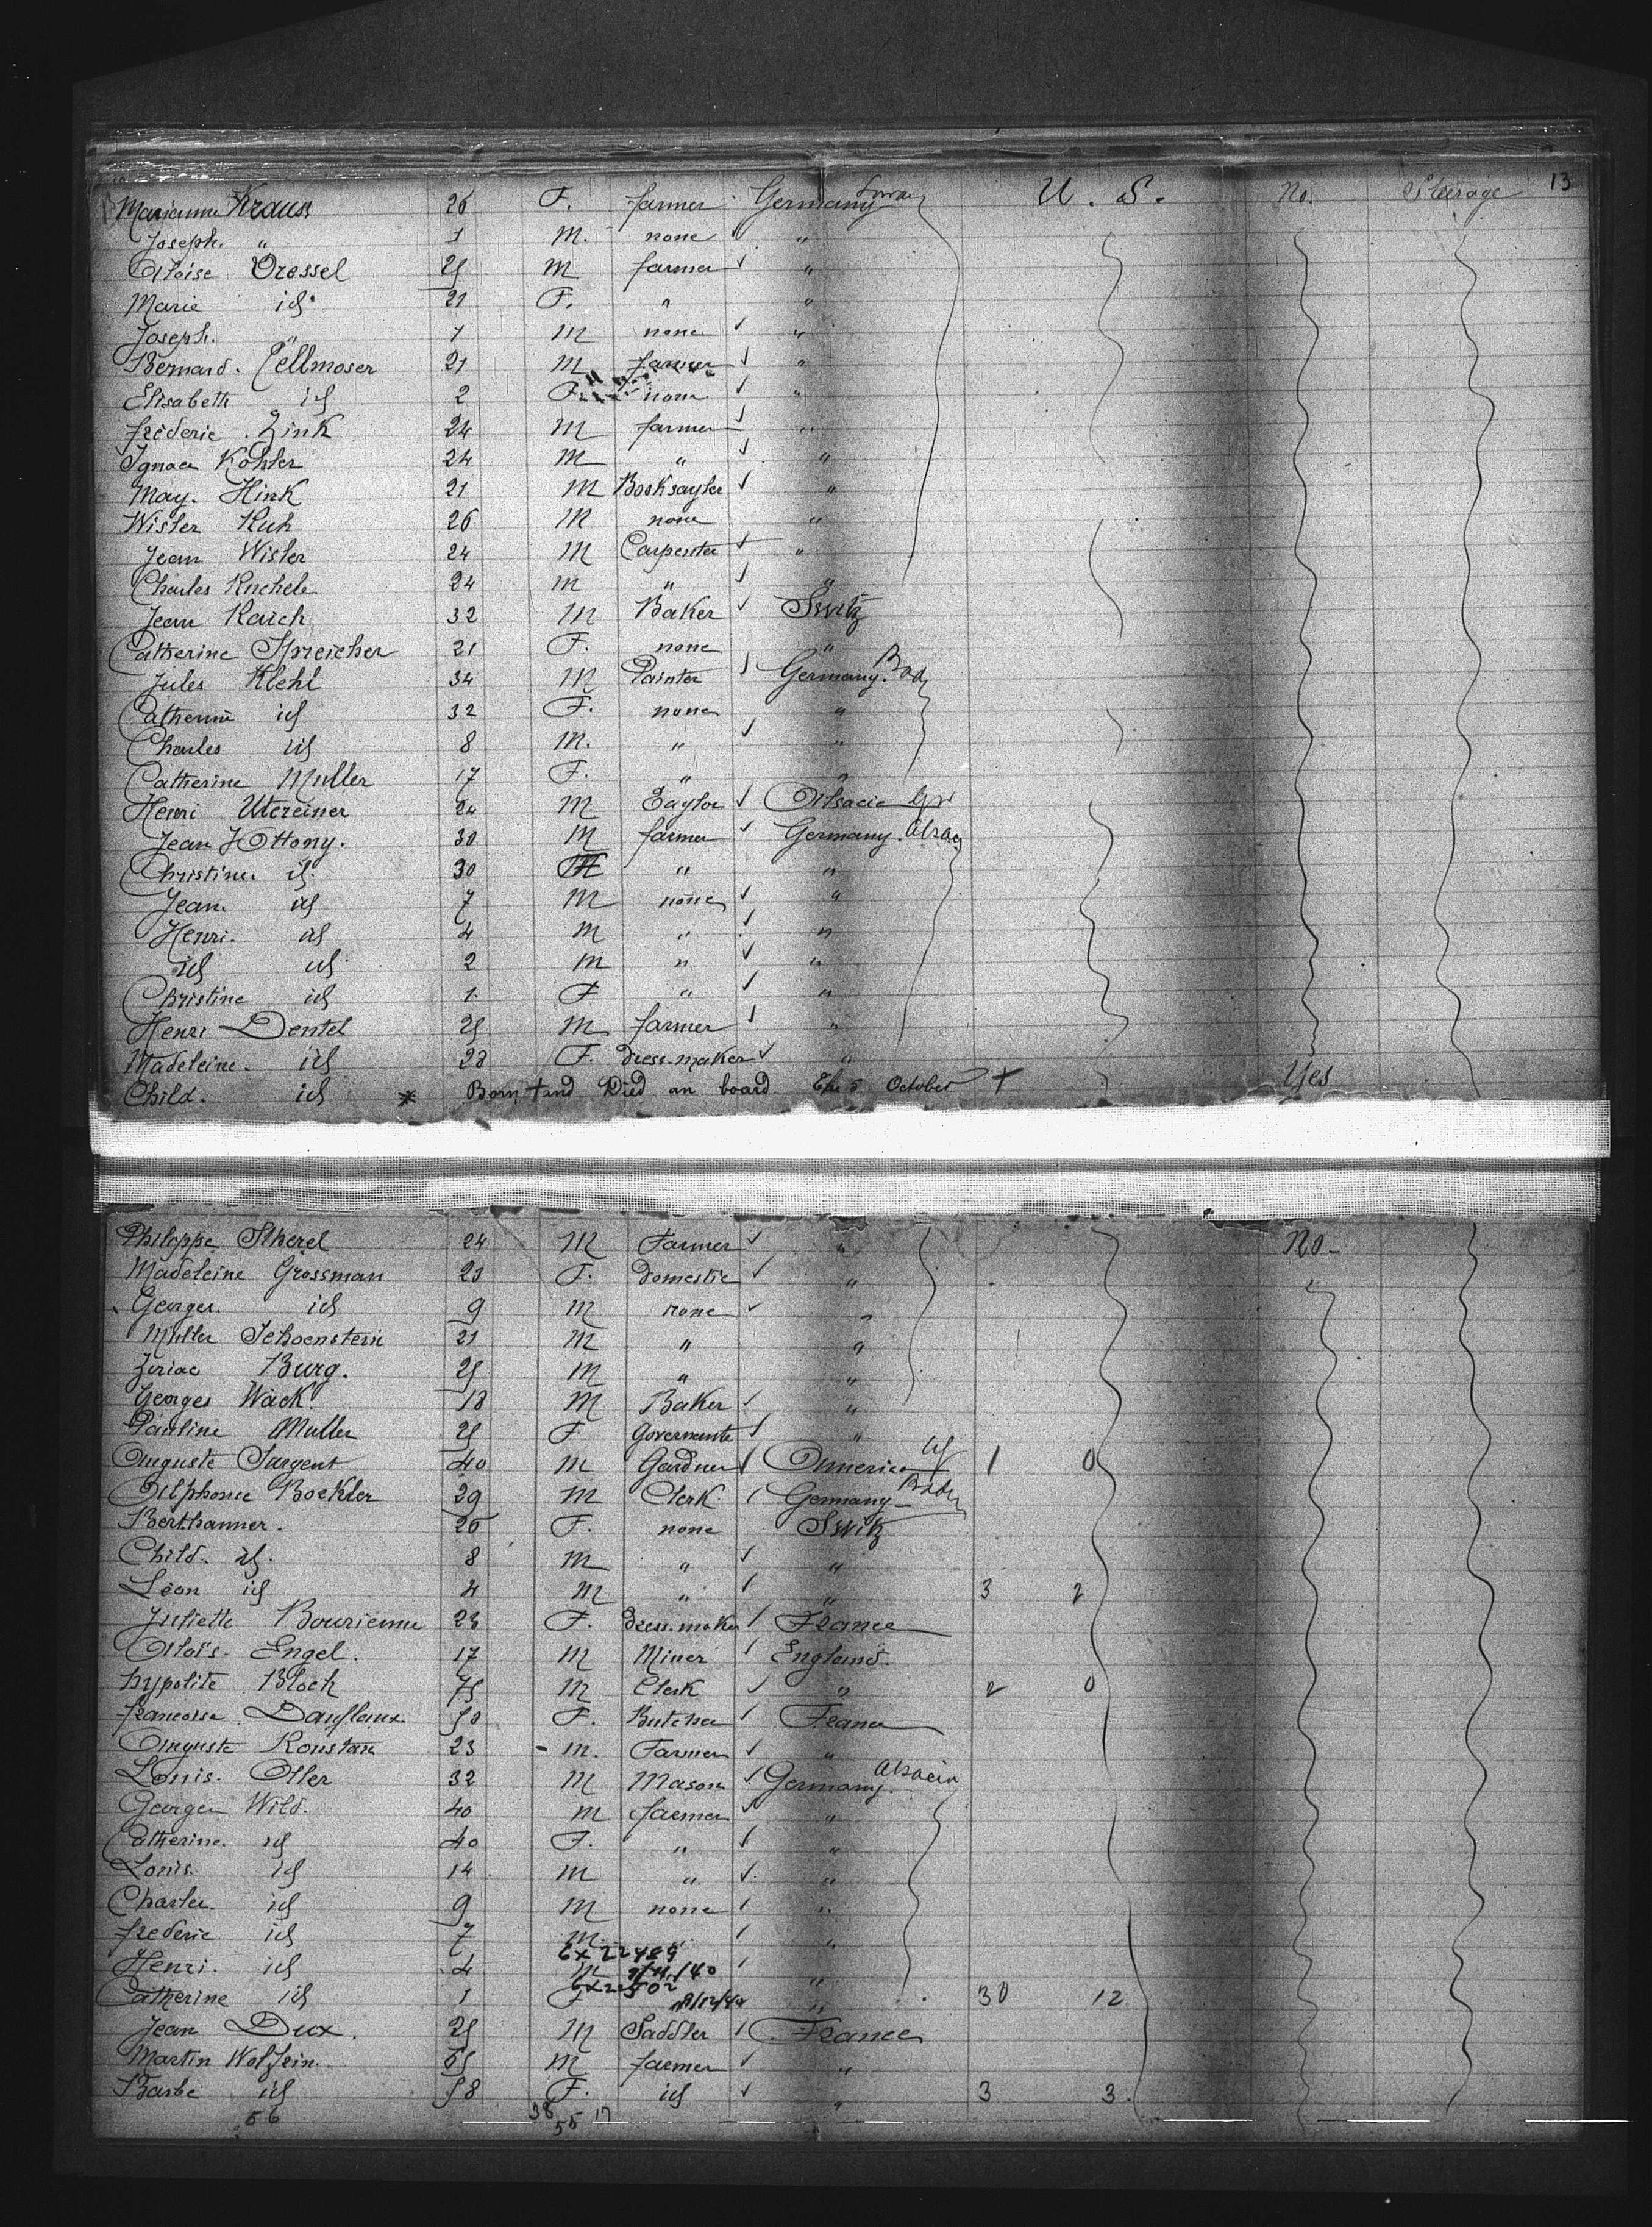 13
Marianne Krauss 26 F. farmer Germany U. S. No. Steerage
Joseph. " 1 M. none "
Aloise Dressel 25 M farmer "
Marie id 21 F. " "
Joseph. " 1 M none "
Bernard. Cellmoser 21 M farmer "
Elisabeth id 2 F. none "
frederic Zink 24 M farmer "
Ignace Kohler 24 M " "
May. Hink 21 M "
Wisler Kuh 26 M none "
Jean Wisler 24 M Carpenter "
Charles Kuchele 24 M " "
Jean Raich 32 M Baker Switz
Catherine Spreicher 21 F. none "
Jules Klehl 34 M Painter Germany. Bad
Catherine id 32 F. none "
Charles id 8 M. " "
Catherine Muller 17 F. " "
Henri Utzreiner 24 M Taylor Alsacia
Jean J Ottony. 30 M farmer Germany. Alsac
Christine id. 30 " "
Jean id 7 M none "
Henri. id 4 M " "
id id 2 M " "
Christine id 1 F " "
Henri Dentel 25 M farmer "
Madeleine. id 28 F. Dress.maker "
Child. id * Born + and Died on board The 5 October + Yes
Philoppe Sherel 24 M Farmer " No-
Madeleine Grossman 23 F. Domestic " "
Georges id 9 M none "
Muller Schoenstein 21 M " "
Ziriac Burg. 25 M " "
Georges Wack. 18 M Baker "
Pauline Muller 25 F Governante "
Auguste Sargent 40 M Gardner America 1 0
Alphonse Boekler 29 M Clerk Germany- Bade
Berthanner. 26 F. none Switz
Child. id. 8 M " "
Léon id 4 M " " 3 2
Juliette Bourienne 23 F. Dress.maker France
Alois. Engel. 17 M Miner England.
hypolite Bloch 75 M Clerk " 2 0
francoise Dauflaux 50 F. Butcher France
Auguste Konstan 23 - M. Farmer "
Louis. Oller 32 M Mason Germany. Alsacia
Georges Wild. 40 M farmer "
Catherine. id 40 F. " "
Louis. id 14 M " "
Charles. id 9 M none "
frederic id 7 M. " "
6x22489
Henri. id 4 M "
Catherine id 1 F " 30 12
Jean Dux. 25 M Saddler France
Martin Wolfrin. 65 M farmer "
Barbe id 58 F. id " 3 3.
56 38 55 17